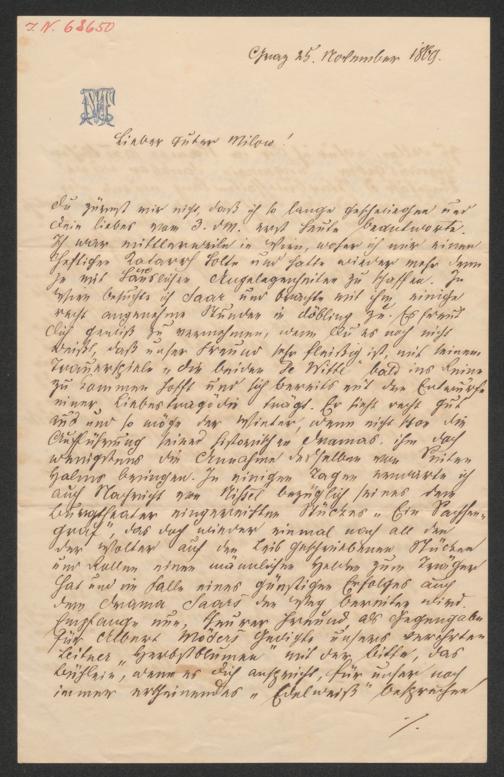 I. N. 68650
Graz 25. November 1869.
Lieber guter Milow!
Du zürnst mir nicht, daß ich so lange geschwiegen und
Dein liebes vom 3. dM. erst heute beantworte.
Ich war mittlerweile in Wien, woher ich mir einen
heftigen Katarrh holte und hatte wieder mehr denn
je mit häuslichen Angelegenheiten zu schaffen. In
Wien besuchte ich Saar und brachte mit ihm einige
recht angenehme Stunden in Döbling zu. Es freut
Dich gewiß zu vernehmen, wenn Du es noch nicht
weißt, daß unser Freund sehr fleißig ist, mit seinem
Trauerspiele „Die beiden De Witt" bald ins Reine
zu kommen hofft und sich bereits mit dem Entwurfe
einer Liebestragödie trägt. Er sieht recht gut
aus und so möge der Winter, wenn nicht schon die
Aufführung seines historischen Dramas, ihm doch
wenigstens die Annahme desselben von Seiten
Halms bringen. In einigen Tagen erwarte ich
auch Nachricht von Nissel bezüglich seines dem
Burgtheater eingereichten Stückes „Ein
das doch wieder einmal nach all den
der Wolter auf den Leib geschriebenen Stücken
und Rollen einen männlichen Helden zum Träger
hat und im Falle eines günstigen Erfolges auch
dem Drama Saars den Weg bereiten wird.
Empfange nun, theurer Freund als Gegengabe
für Albert Mösers Gedichte unsers verehrten
Leitner „Herbstblumen" mit der Bitte, das
Büchlein, wenn es Dich anspricht, für unser noch
immer erscheinendes „Edelweiß" besprechen
/.